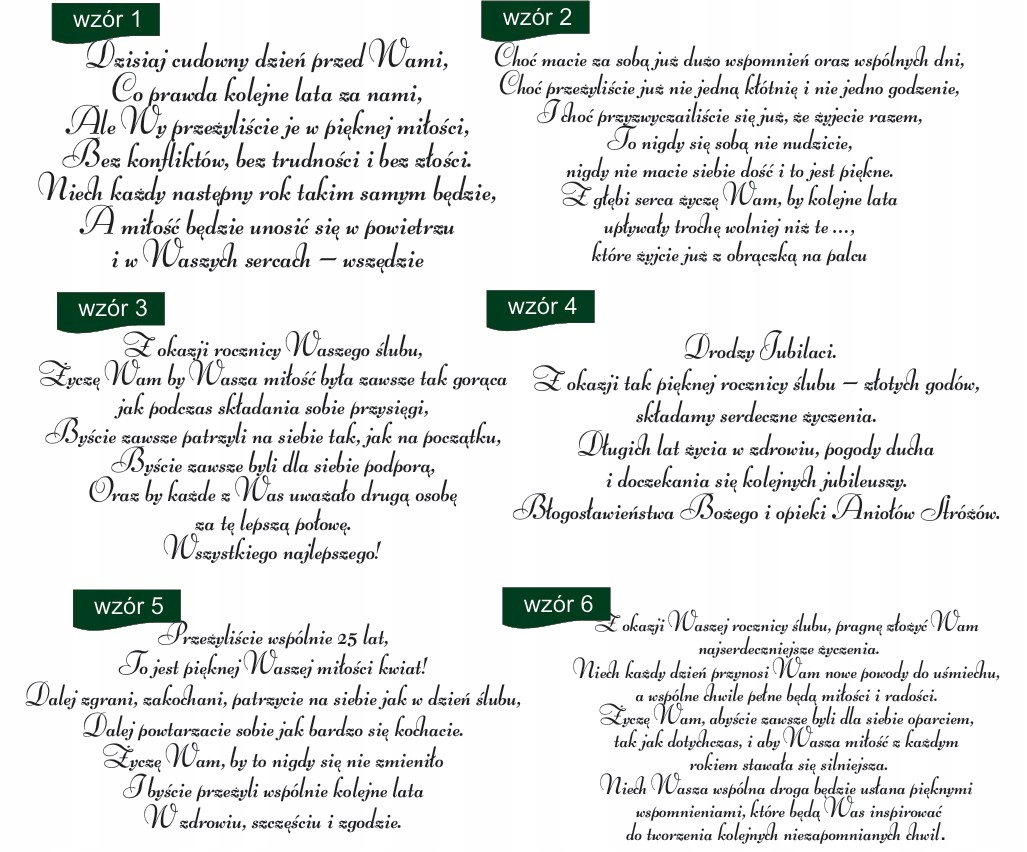 wzór 1
Dzisiaj cudowny dzień przed Wami,
Co prawda kolejne lata za nami,
Ale Wy przeżyliście je w pięknej miłości,
Bez konfliktów, bez trudności i bez złości.
Niech każdy następny rok takim samym będzie,
A miłość będzie unosić się w powietrzu
i w Waszych sercach – wszędzie
wzór 2
Choć macie za sobą już dużo wspomnień oraz wspólnych dni,
Choć przeżyliście już nie jedną kłótnię i nie jedno godzenie,
I choć przyzwyczailiście się już, że żyjecie razem,
To nigdy się sobą nie nudzicie,
nigdy nie macie siebie dość i to jest piękne.
Z głębi serca życzę Wam, by kolejne lata
upływały trochę wolniej niż te ...,
które żyjcie już z obrączką na palcu
wzór 3
Z okazji rocznicy Waszego ślubu,
Życzę Wam by Wasza miłość była zawsze tak gorąca
jak podczas składania sobie przysięgi,
Byście zawsze patrzyli na siebie tak, jak na początku,
Byście zawsze byli dla siebie podporą,
Oraz by każde z Was uważało drugą osobę
za tę lepszą połowę.
Wszystkiego najlepszego!
wzór 4
Drodzy Jubilaci.
Z okazji tak pięknej rocznicy ślubu – złotych godów,
składamy serdeczne życzenia.
Długich lat życia w zdrowiu, pogody ducha
i doczekania się kolejnych jubileuszy.
Błogosławieństwa Bożego i opieki Aniołów Stróżów.
wzór 5
Przeżyliście wspólnie 25 lat,
To jest pięknej Waszej miłości kwiat!
Dalej zgrani, zakochani, patrzycie na siebie jak w dzień ślubu,
Dalej powtarzacie sobie jak bardzo się kochacie.
Życzę Wam, by to nigdy się nie zmieniło
I byście przeżyli wspólnie kolejne lata
W zdrowiu, szczęściu i zgodzie.
wzór 6
Z okazji Waszej rocznicy ślubu, pragnę złożyć Wam
najserdeczniejsze życzenia.
Niech każdy dzień przynosi Wam nowe powody do uśmiechu,
a wspólne chwile pełne będą miłości i radości.
Życzę Wam, abyście zawsze byli dla siebie oparciem,
tak jak dotychczas, i aby Wasza miłość z każdym
rokiem stawała się silniejsza.
Niech Wasza wspólna droga będzie usłana pięknymi
wspomnieniami, które będą Was inspirować
do tworzenia kolejnych niezapomnianych chwil.